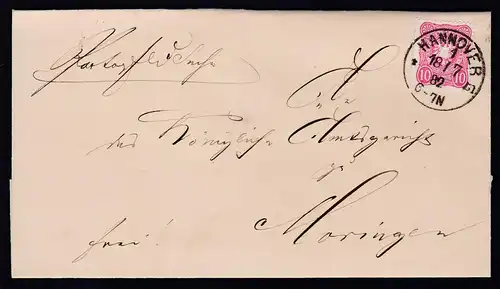 HANNOVER
1
18 / 7
82
6-7N
10 10
Portopfl. D. Sache
An
das Königliche Amtsgericht
zu
frei! Moringen